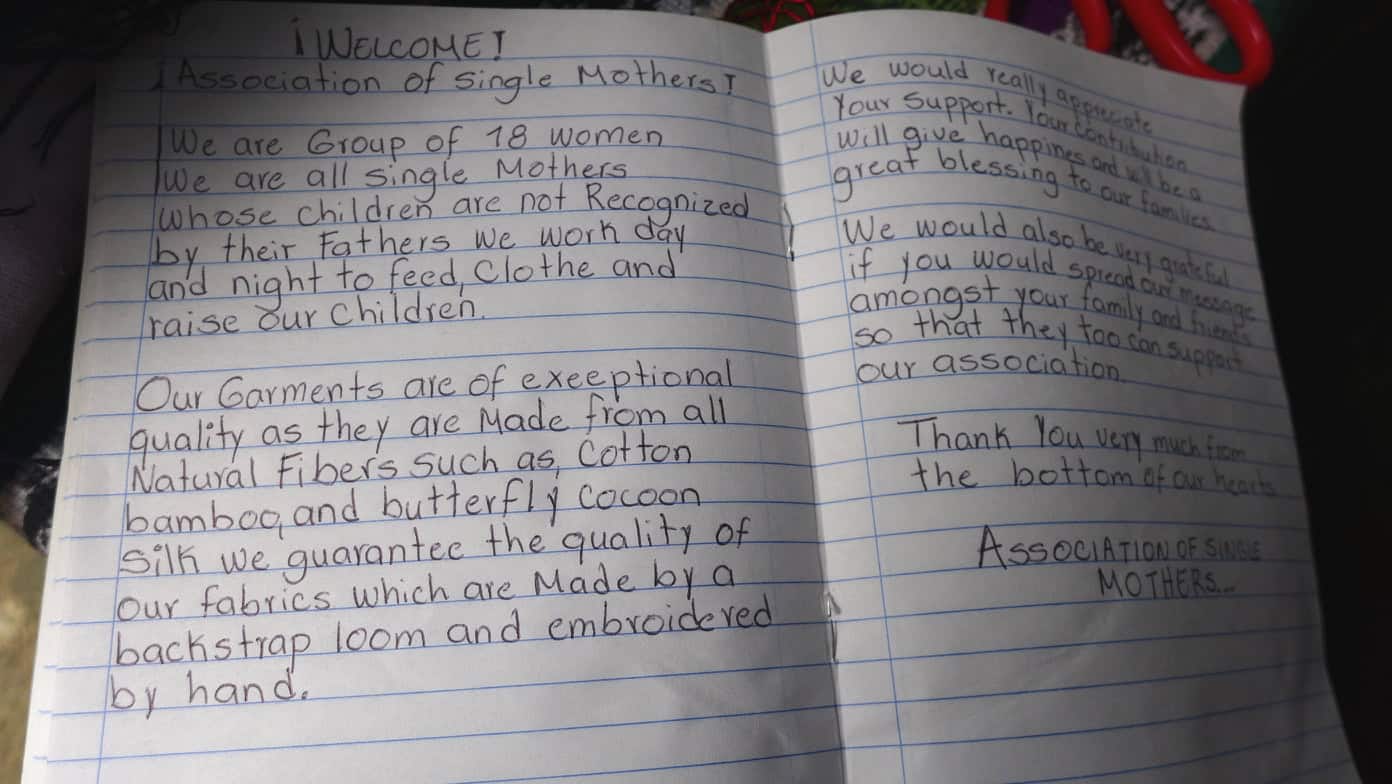 ¡WELCOME!
¡Association of single Mothers!
We are Group of 18 women
We are all single Mothers
whose children are not Recognized
by their Fathers we work day
and night to feed, Clothe and
raise our Children.
Our Garments are of exeeptional
quality as they are Made from all
Natural Fibers such as, Cotton
bamboo, and butterfly cocoon
silk we guarantee the quality of
our fabrics which are Made by a
backstrap loom and embroidered
by hand.
We would really appreciate
Your support. Your Contribution
will give happines and will be a
great blessing to our families.
We would also be very grateful
if you would spread our message
amongst your family and friends
so that they too can support
our association.
Thank You very much from
the bottom of our hearts
ASSOCIATION OF SINGLE
MOTHERS...